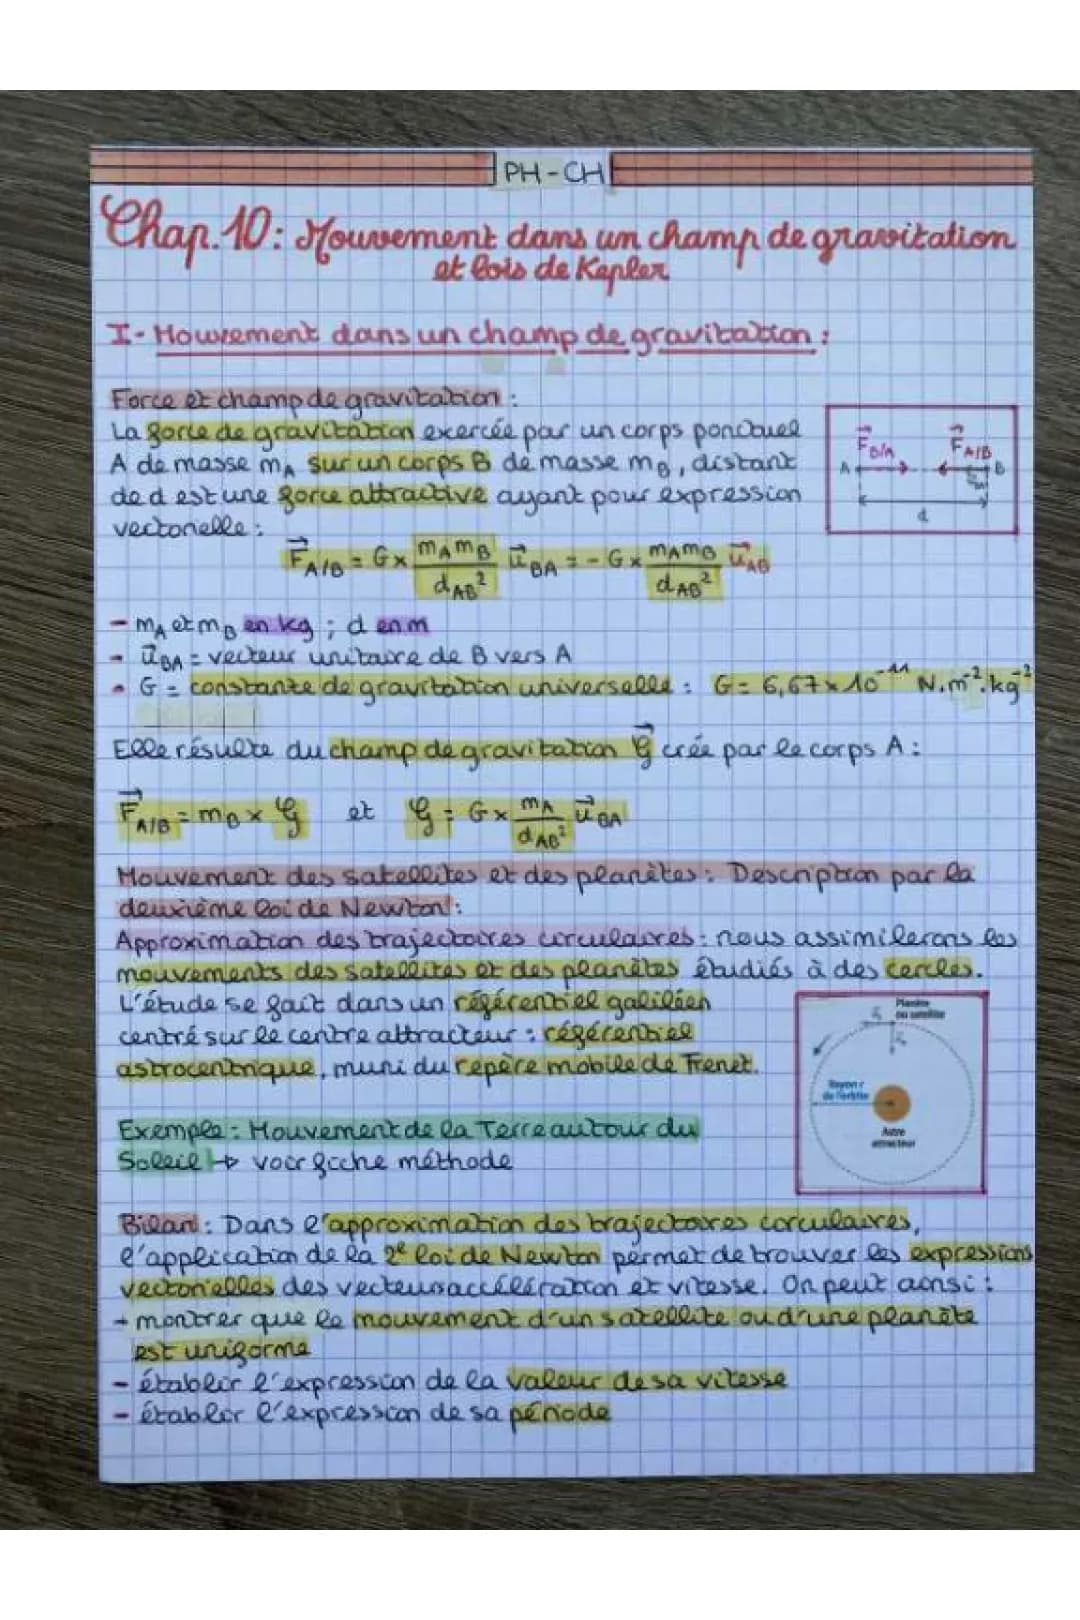 PH-CH
Chap.10: Mouvement dans un champ de gravitation
et lois de Kepler
I- Mouvement dans un champ de gravitation :
Force et champ de gravitation :
La force de gravitation exercée par un corps ponctuel
A de masse mA sur un corps B de masse mB, distant
de d est une force attractive ayant pour expression
vectorielle :
F⃗B/A F⃗A/B
A B
d
F⃗A/B = G× mAmB/dAB² u⃗BA = -G× mAmB/dAB² u⃗AB
- mA et mB en kg ; d en m
- u⃗BA = vecteur unitaire de B vers A
- G = constante de gravitation universelle : G= 6,67×10⁻¹¹ N.m².kg⁻²
Elle résulte du champ de gravitation G⃗ crée par le corps A :
F⃗A/B = mB × G⃗ et G⃗ = G× mA/dAB² u⃗BA
Mouvement des satellites et des planètes : Description par la
deuxième loi de Newton :
Approximation des trajectoires circulaires : nous assimilerons les
mouvements des satellites et des planètes étudiés à des cercles.
L'étude se fait dans un référentiel galiléen
centré sur le centre attracteur : référentiel
astrocentrique, muni du repère mobile de Frenet.
Planète
ou satellite
Rayon r
de l'orbite
Astre
attracteur
Exemple : Mouvement de la Terre autour du
Soleil ↳ voir fiche méthode
Bilan : Dans l'approximation des trajectoires circulaires,
l'application de la 2e loi de Newton permet de trouver les expressions
vectorielles des vecteurs accélération et vitesse. On peut ainsi :
- montrer que le mouvement d'un satellite ou d'une planète
est uniforme
- établir l'expression de la valeur de sa vitesse
- établir l'expression de sa période